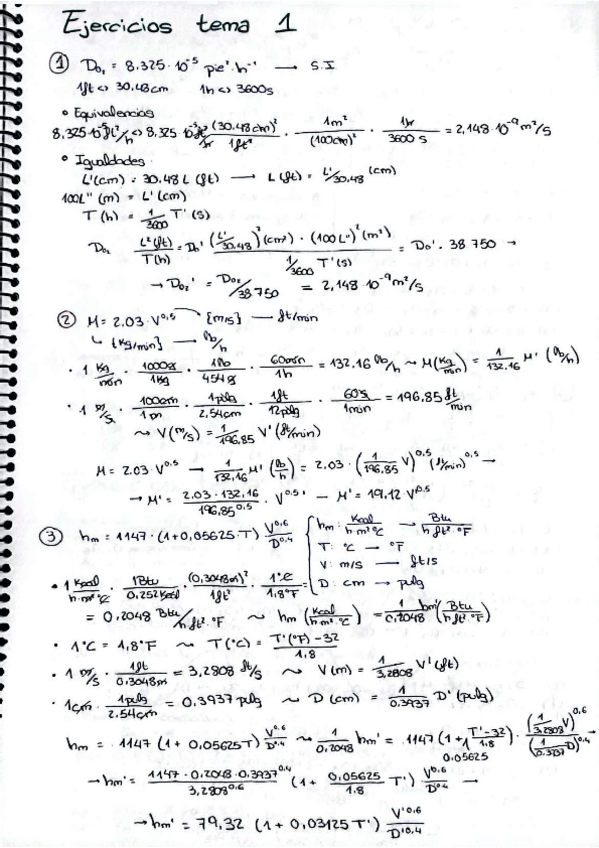 Ejercicios tema 1
① D₀₁ = 8.325·10⁻⁵ pie²·h⁻¹ → S.I
1ft ↔ 30,48cm 1h ↔ 3600s
• Equivalencias
8,325·10⁻⁵ ft²/h ↔ 8.325·10⁻⁵ ft²/hr · (30.48cm)²/1ft² · 1m²/(100cm)² · 1hr/3600 s = 2,148·10⁻⁹ m²/s
• Igualdades:
L'(cm) = 30.48 L (ft) → L(ft) = L'/30,48 (cm)
100L'' (m) = L' (cm)
T (h) = 1/3600 T' (s)
D₀₂ L²(ft)/T(h) = D₀' (L'/30,48)²(cm²) · (100L'')²(m²) / 1/3600 T'(s) = D₀' · 38 750 →
→ D₀₂' = D₀₂/38 750 = 2,148·10⁻⁹ m²/s
② M = 2.03·V⁰·⁵ {m/s} → ft/min
↳ {kg/min} → lb/h
• 1 kg/min · 1000g/1kg · 1lb/454g · 60min/1h = 132.16 lb/h ~ M(kg/min) = 1/132,16 M' (lb/h)
• 1 m/s · 100cm/1m · 1pulg/2,54cm · 1ft/12pulg · 60s/1min = 196,85 ft/min
~ V(m/s) = 1/196,85 V' (ft/min)
M = 2.03·V⁰·⁵ → 1/132,16 M' (lb/h) = 2.03·(1/196,85 V)⁰·⁵ (ft/min)⁰·⁵ →
→ M' = 2.03·132,16/196,85⁰·⁵ · V⁰·⁵' – M' = 19,12·V'⁰·⁵
③ hm = 1147·(1+0,05625·T) V⁰·⁶/D⁰·⁴
hm: Kcal/h m² °C → Btu/h ft²·°F
T: °C → °F
V: m/s → ft/s
D: cm → pulg
• 1 Kcal/h·m²·°C · 1Btu/0.252Kcal · (0,3048m)²/1ft² · 1°C/1,8°F =
= 0,2048 Btu/h ft²·°F ~ hm (Kcal/h m² °C) = 1/0,2048 hm' (Btu/h ft² °F)
• 1°C = 1,8°F ~ T(°C) = T'(°F) -32/1.8
• 1 m/s · 1ft/0.3048m = 3,2808 ft/s ~ V(m) = 1/3,2808 V' (ft)
• 1cm · 1pulg/2.54cm = 0.3937 pulg ~ D (cm) = 1/0.3937 D' (pulg)
hm = 1147 (1 + 0,05625T) V⁰·⁶/D⁰·⁴ ~ 1/0,2048 hm' = 1147 (1+ T'-32/1,8) · (1/3,2808 V)⁰·⁶/(1/0.3937 D)⁰·⁴ →
0,05625
→ hm' = 1147·0,2048·0.3937⁰·⁴/3,2808⁰·⁶ (1+ 0,05625/1.8 T') V⁰·⁶/D⁰·⁴ →
→ hm' = 79,32 (1 + 0,03125T') V'⁰·⁶/D'⁰·⁴